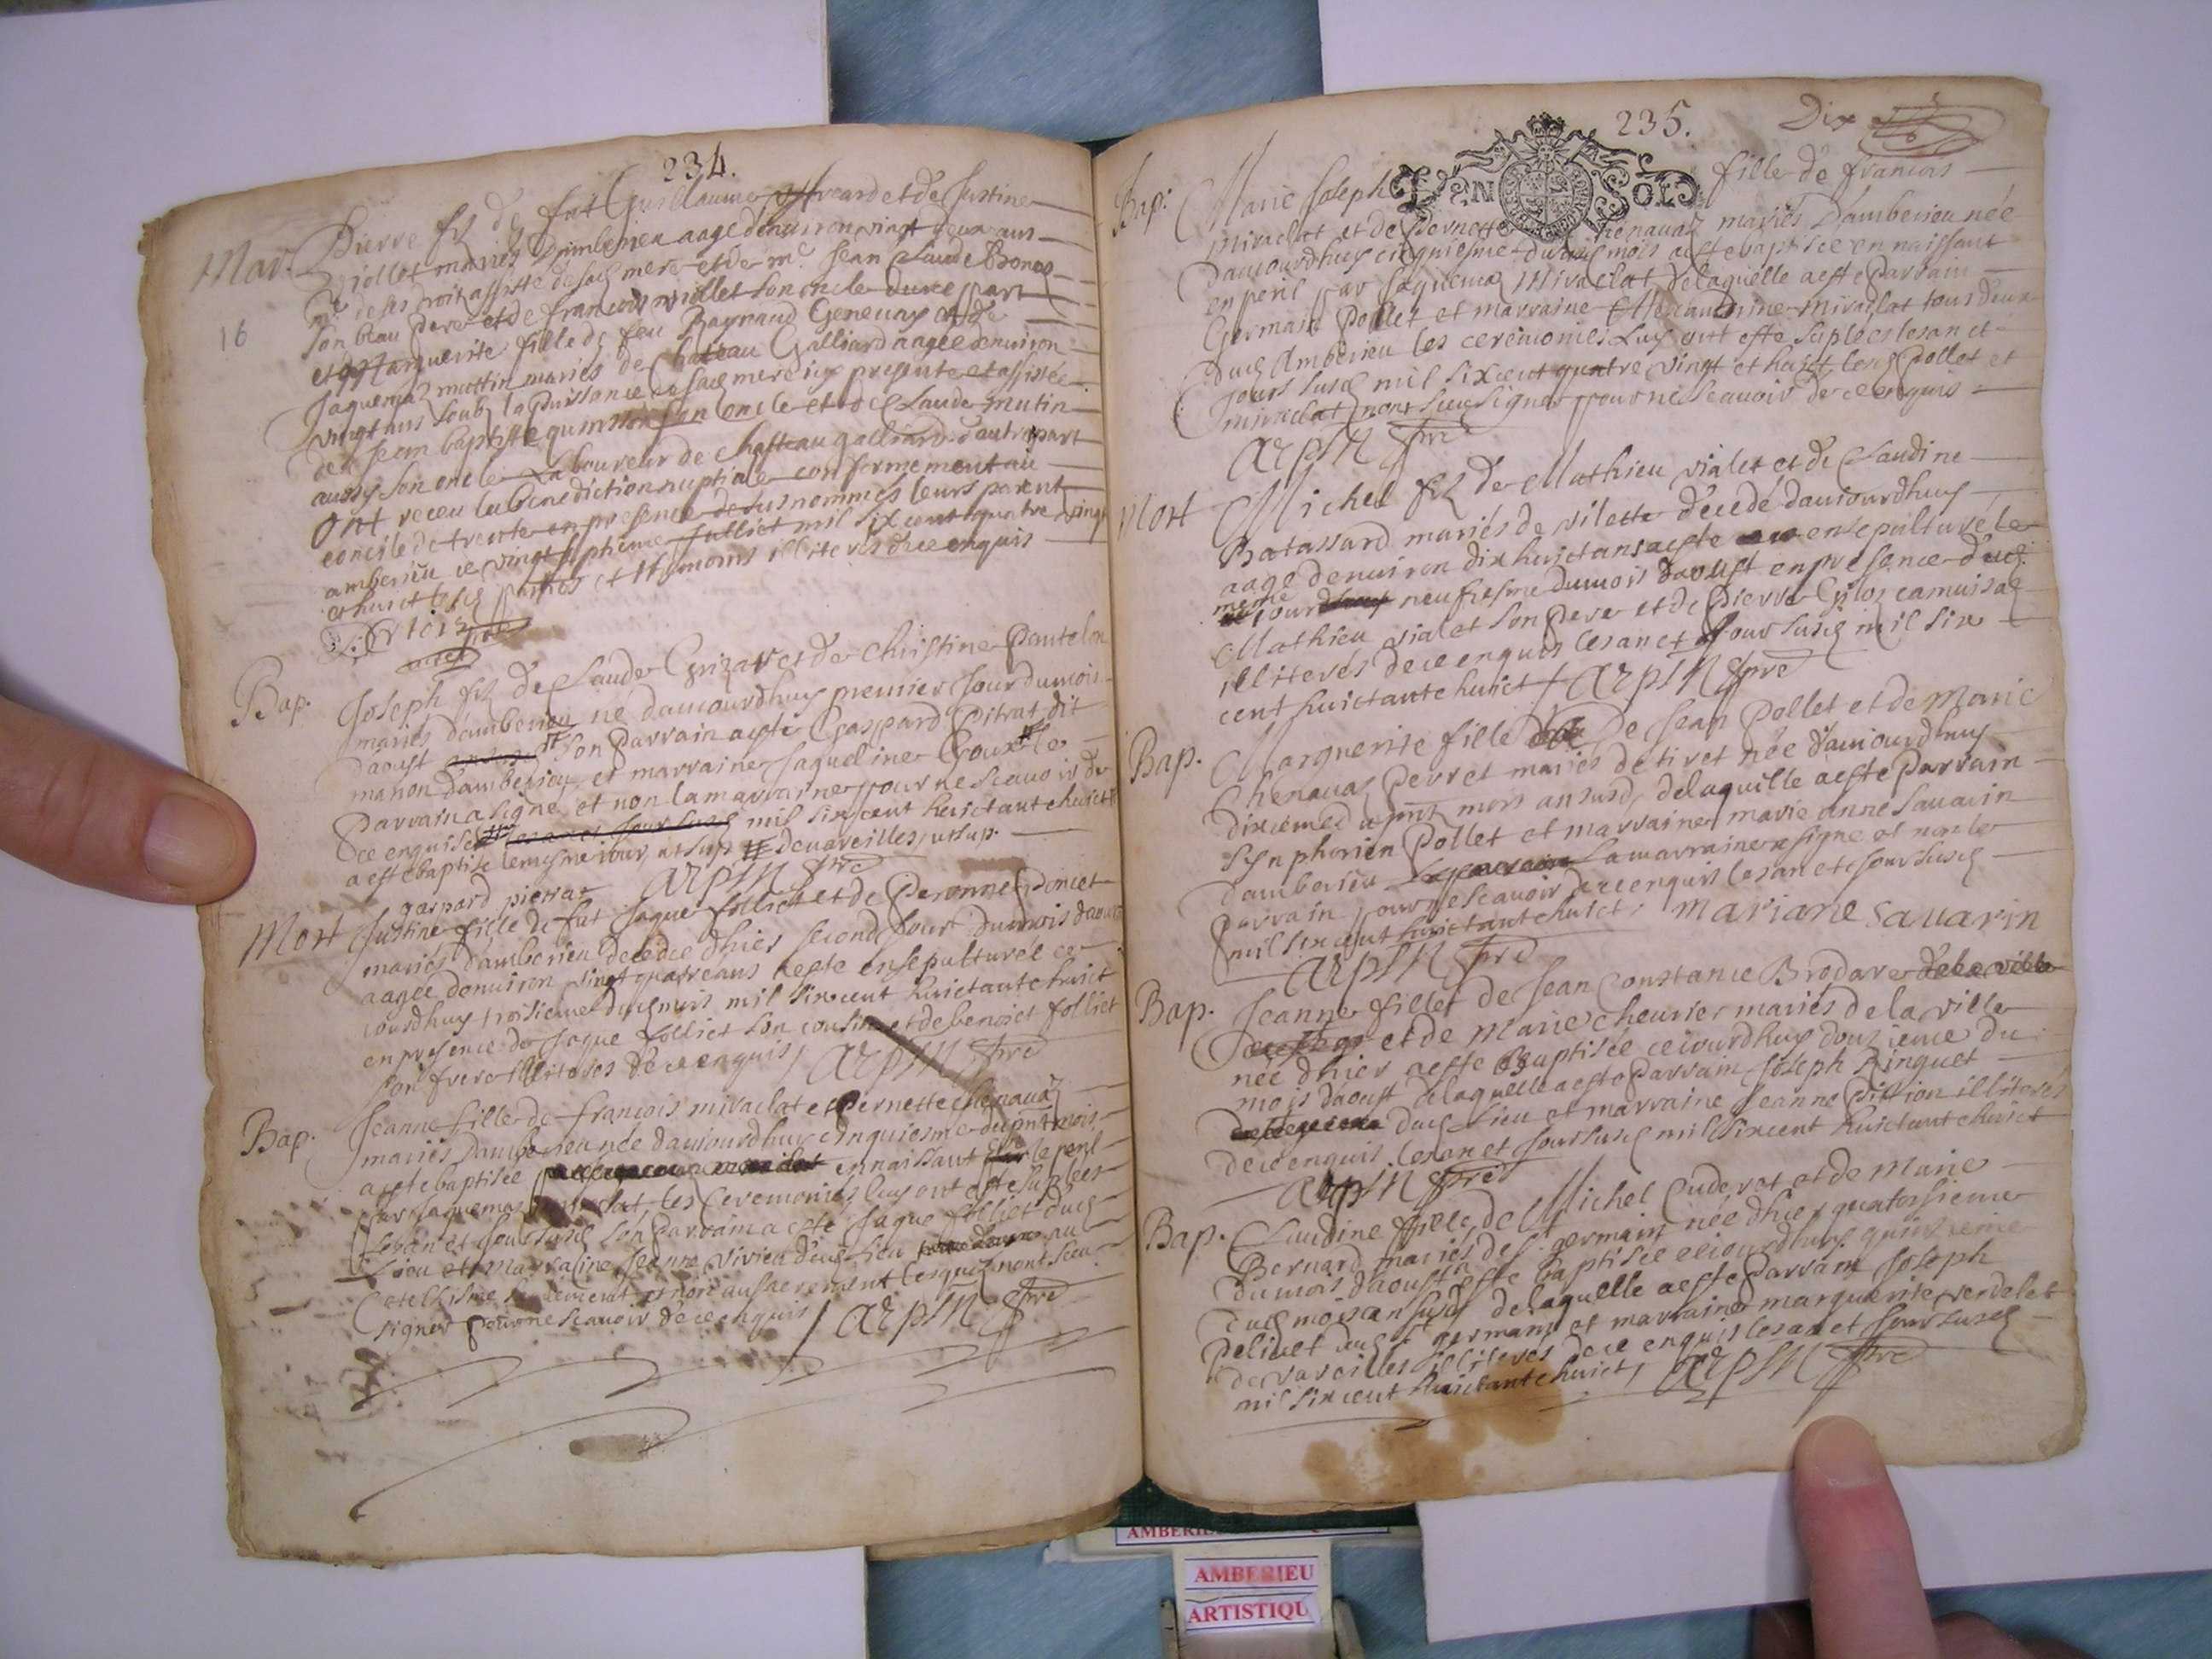 234.
Mar. Pierre filz de fut Guillaume et de Justine
Viollet mariés d'amberieu aagé denuiron vingt deux ans
mre de ses droits assisté de sad mere et de mre Jean Claude Bonas
son beau pere et de francois viollet son oncle dune part
16
et Marguerite fille de feu Raynaud Geneuay et de
Jaquemaz muttin mariés de Chateau Galliard aagee denuiron
vingt ans soubz la puissance de sad mere icy presente et assistee
de Jean baptiste son oncle et de Claude mutin
aussy son oncle Laboureur de Chasteau galliard dautre part
ont receu la benediction nuptiale conformement au
concile de trente en presence de susnommés leurs parent
amberieu ce vingt septieme Julliet mil six cent quatre vingt
et huict lesd parties et temoins illiterés de ce enquis
Bap. Joseph filz de Claude Grizat et de Christine Pantelon
mariés damberieu né daujourdhuy premier Jour du mois
daoust son Parrain a esté Gaspard Pitrat dit
manon damberieu et marraine Jaqueline Croux les
Parrain a signé et non la marraine pour ne scauoir de
ce enquise mil six cent huictante huict
a esté baptisé le mesme iour, ut sup. # de vareilles, ut sup.
gaspard pietrat ARPIN pre
Mort Justine fille de fut Jaque folliet et de Peronne Poncet
mariés d'amberieu decedee dhier second Jour du mois daoust
aagée denuiron vingt quatre ans a esté ensepulturée ce
iourdhuy troisieme dud mois mil six cent huictante huict
en presence de Jaque folliet son cousin et de benoict folliet
son frere illiterés de ce enquis / ARPIN pre
Bap. Jeanne fille de francois miraclat et Pernette chenauaz
mariés damberieu née daujourdhuy cinquiesme du pnt mois
a esté baptisée en naissant le peril
par Jaquemaz miraclat, les Ceremonies luy ont esté suplees
les an et Jour susd son Parrain a esté Jaque folliet dud
Lieu et marraine Jeanne Vivien dud Lieu au
Catechisme seulement et non au sacrement lesquelz nont sceu
signer pour ne scauoir de ce enquis / ARPIN pre
235.
Dix
GEN SOLS
Bap. Marie Joseph fille de francois
miraclat et de Pernette chenauaz mariés Damberieu née
daujourdhuy cinquiesme du mois a esté baptisée en naissant
en peril par Jaquemaz Miraclat de laquelle a esté Parrain
Germain Pollet et marraine miraclat tous deux
dud Amberieu les ceremonies Luy ont esté suplées les an et
Jours susd mil six cent quatre vingt et huict lesd Pollet et
miraclat nont sceu signer pour ne scauoir de ce enquis
ARPIN pre
Mort Michel filz de Mathieu vialet et de Claudine
Batassard mariés de vilette décedé daujourdhuy
aagé denuiron dix huict ans a esté ensepulturé le
meme jour neufiesme du mois d'aoust en presence dud
Mathieu vialet son Pere et de Pierre
illiterés de ce enquis les an et Jour susd mil six
cent huictante huict / ARPIN pre
Bap. Marguerite fille de Jean Pollet et de Marie
Chenauaz Perret mariés de tiret née d'aujourdhuy
dixieme du pnt mois an susd, de laquelle a esté Parrain
Synphorien Pollet et marraine marie anne Sauarin
damberieu La marraine a signé et non le
Parrain pour ne scauoir de ce enquis les an et Jour susd
mil six cent huictante huict / mariane sauarin
ARPIN pre
Bap. Jeanne fille de Jean Constance Brodare de la ville
et de Marie cheurier mariés de la ville
née dhier a esté Baptisée ce iourdhuy douzieme du
mois d'aoust de laquelle a esté Parrain Joseph Ringuet
dud Lieu et marraine Jeanne Pittion illiterés
de ce enquis les an et Jour susd mil six cent huictante huict
ARPIN pre
Bap. Claudine fille de Michel Cuderat et de Marie
Bernard mariés de St germain née dhier quatorsieme
du mois daoust a esté baptisée ce iourdhuy quinzieme
dud mois an susd, de laquelle a esté Parrain Joseph
Peliuet dud St germain et marraine marguerite verdelet
de vareilles illiterés de ce enquis les an et Jour susd
mil six cent huictante huict / ARPIN pre
AMBERIEU
AMBERIEU
ARTISTIQU